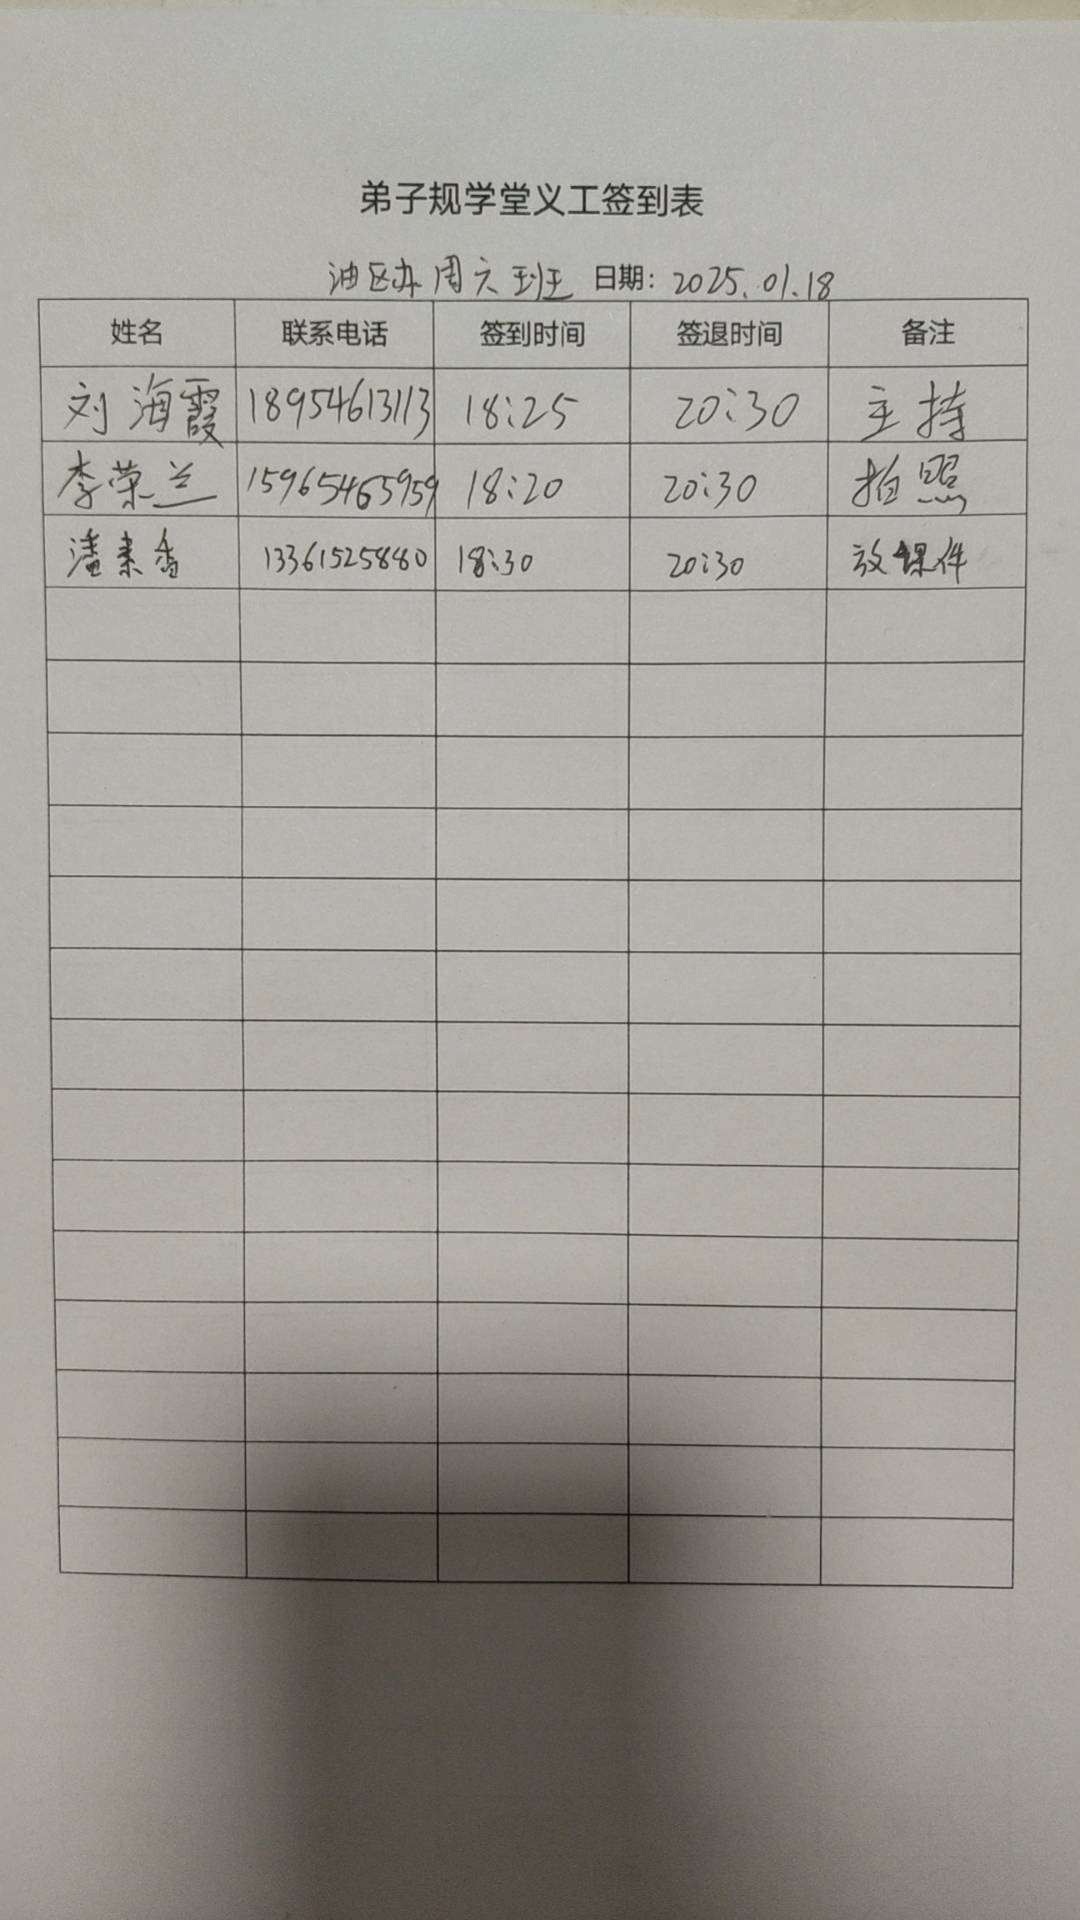 弟子规学堂义工签到表
油区办周六班 日期: 2025.01.18
姓名 联系电话 签到时间 签退时间 备注
刘海霞 18954613113 18:25 20:30 主持
李荣兰 15965465959 18:20 20:30 拍照
潘素香 13361525880 18:30 20:30 放课件